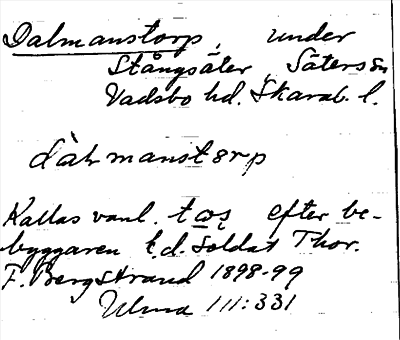 Dalmanstorp, under
Stångsäter Säters sn
Vadsbo hd. Skarab. l.
dàlmanstorp
Kallas vanl. efter be-
byggaren f.d. Soldat Thor.
F. Bergstrand 1898-99
Ulma 111:331